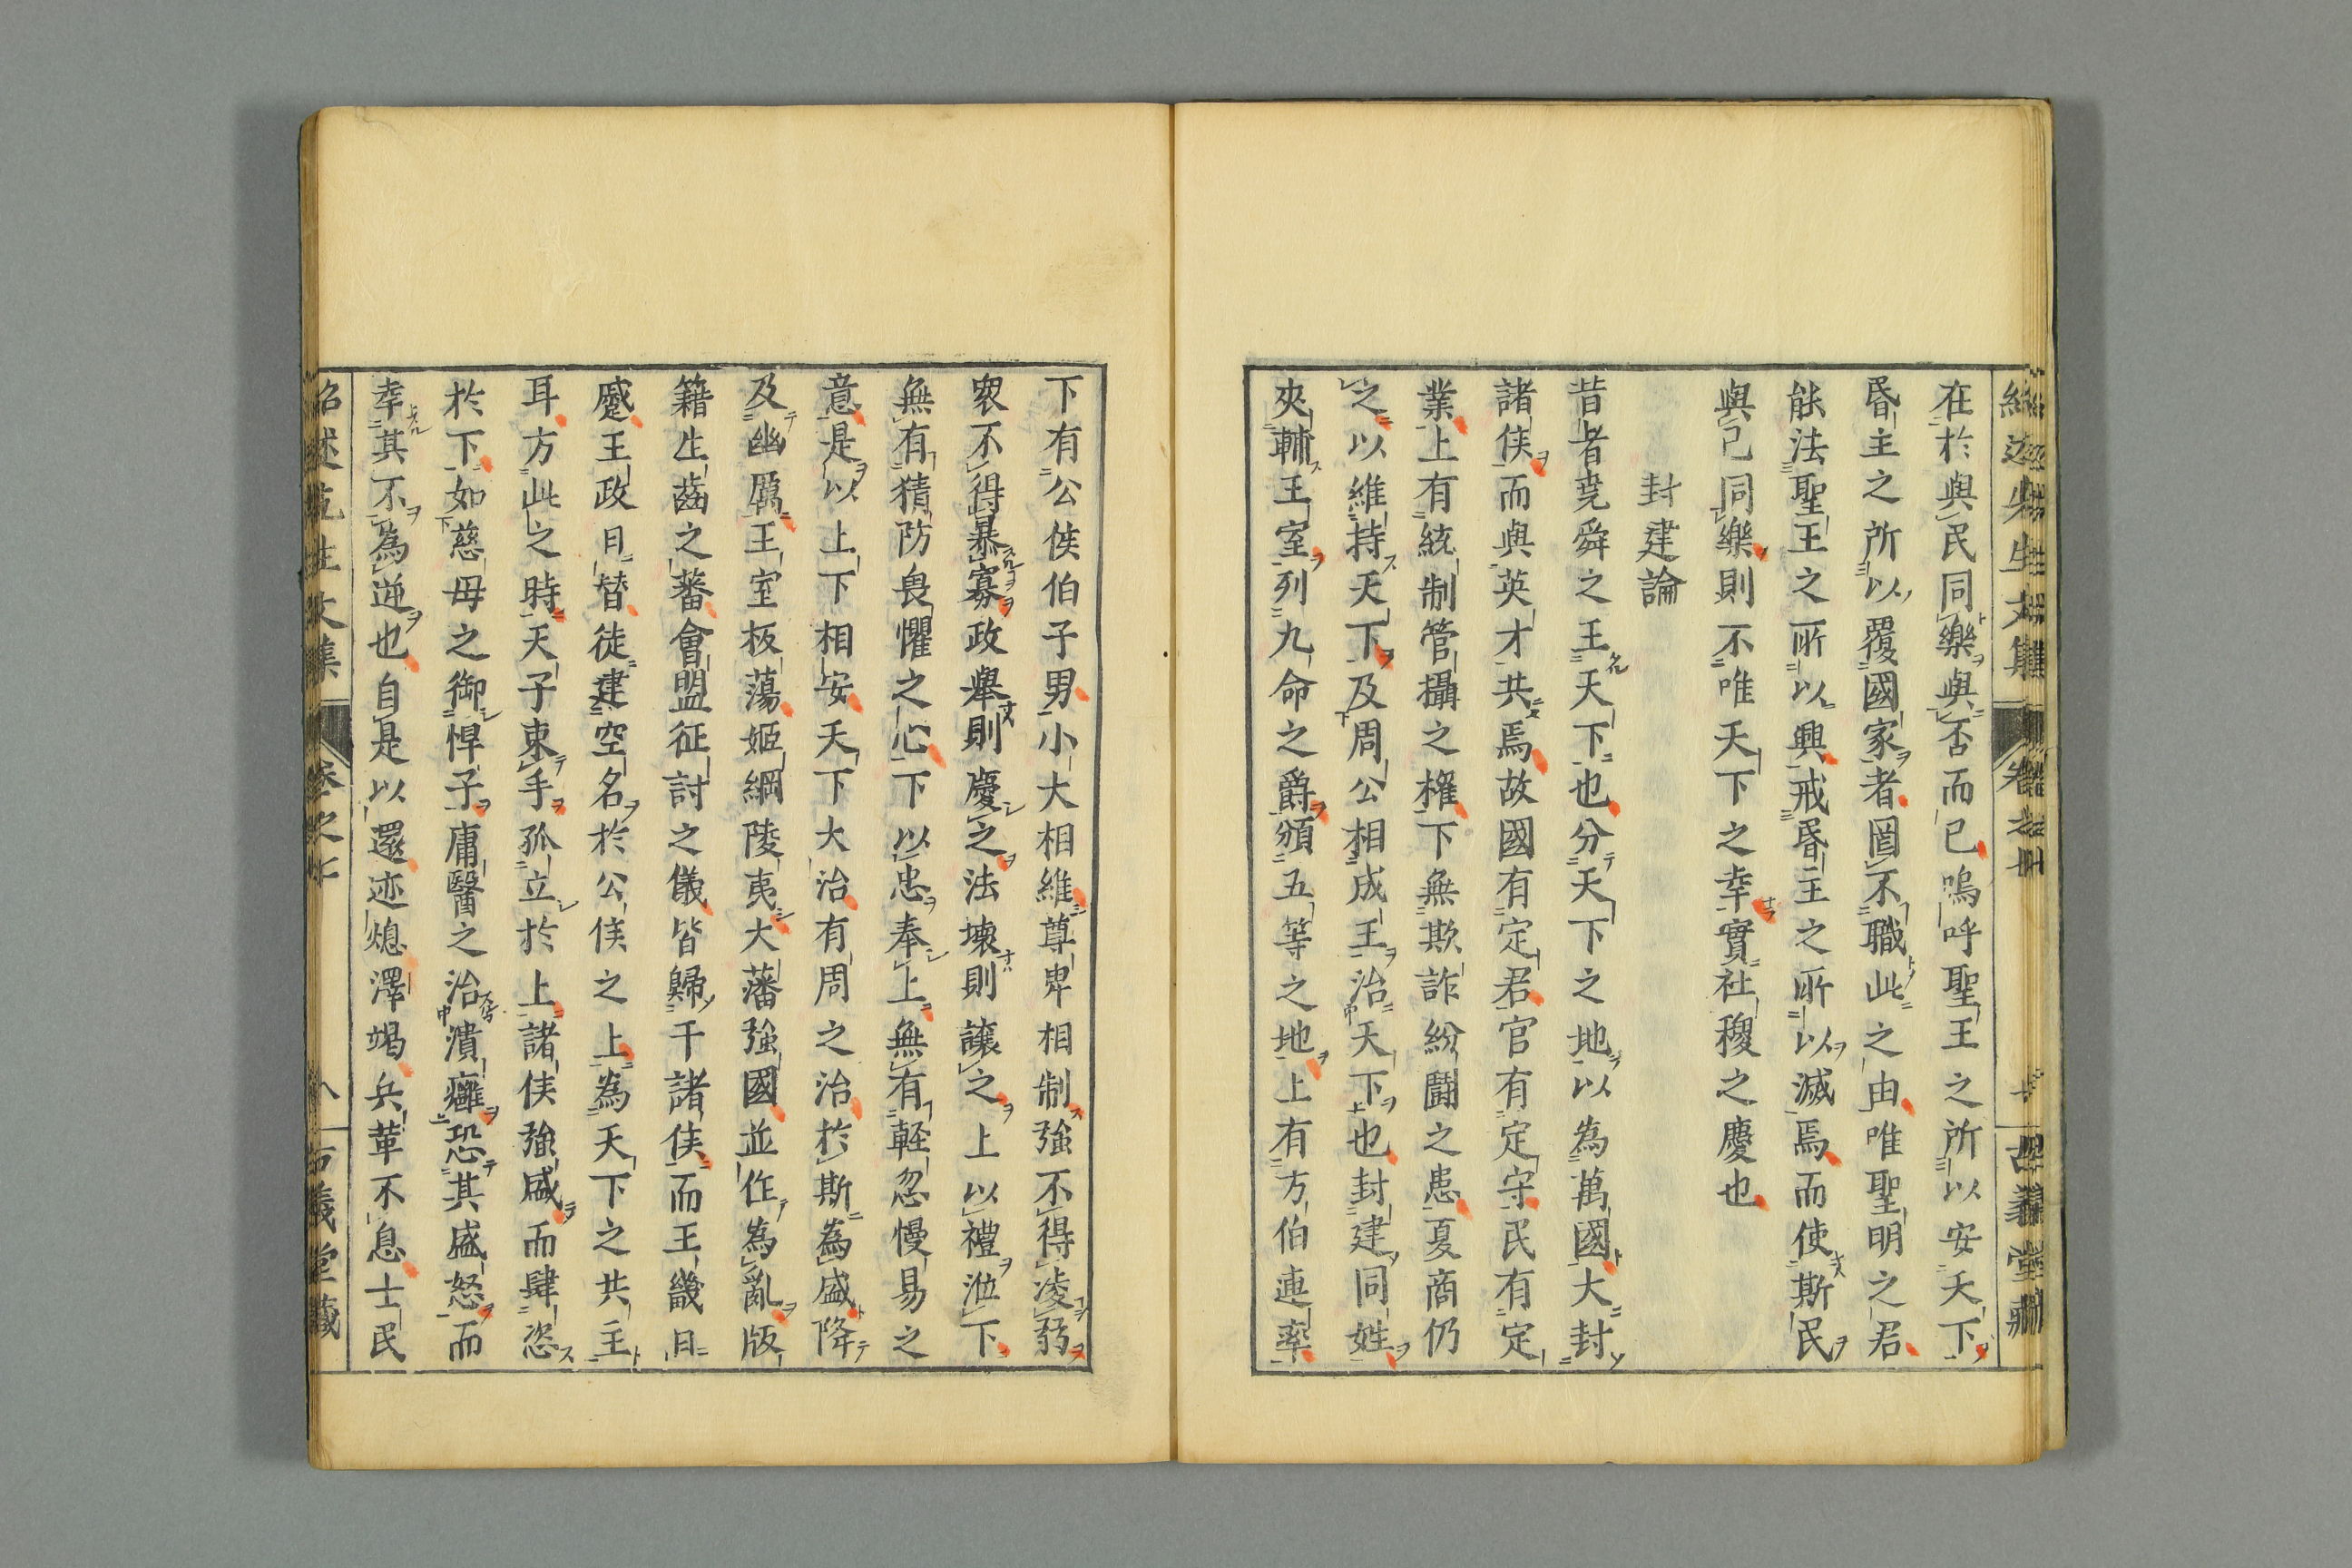 在於與民同樂與否而已嗚呼聖王之所以安天下
昏主之所以覆國家者罔不職此之由唯聖明之君
能法聖王之所以興戒昏主之所以滅焉而使斯民
與己同樂則不唯天下之幸實社稷之慶也
封建論
昔者堯舜之王天下也分天下之地以為萬國大封
諸侯而與英才共焉故國有定君官有定守民有定
業上有統制管攝之權下無欺詐紛鬪之患夏商仍
之以維持天下及周公相成王治天下也封建同姓
夾輔王室列九命之爵頒五等之地上有方伯連率
下有公侯伯子男小大相維尊卑相制強不得凌弱
衆不得暴寡政舉則慶之法壞則讓之上以禮涖下
無有猜防畏懼之心下以忠奉上無有輕忽慢易之
意是以上下相安天下大治有周之治於斯為盛降
及幽厲王室板蕩姬綱陵夷大藩強國並作為亂版
籍生齒之蕃會盟征討之儀皆歸于諸侯而王畿日
蹙王政日替徒建空名於公侯之上為天下之共主
耳方此之時天子束手孤立於上諸侯強盛而肆恣
於下如慈母之御悍子庸醫之治潰癰恐其盛怒而
幸其不為逆也自是以還迹熄澤竭兵革不息士民
紹述先生文集 卷之 八 古義堂藏